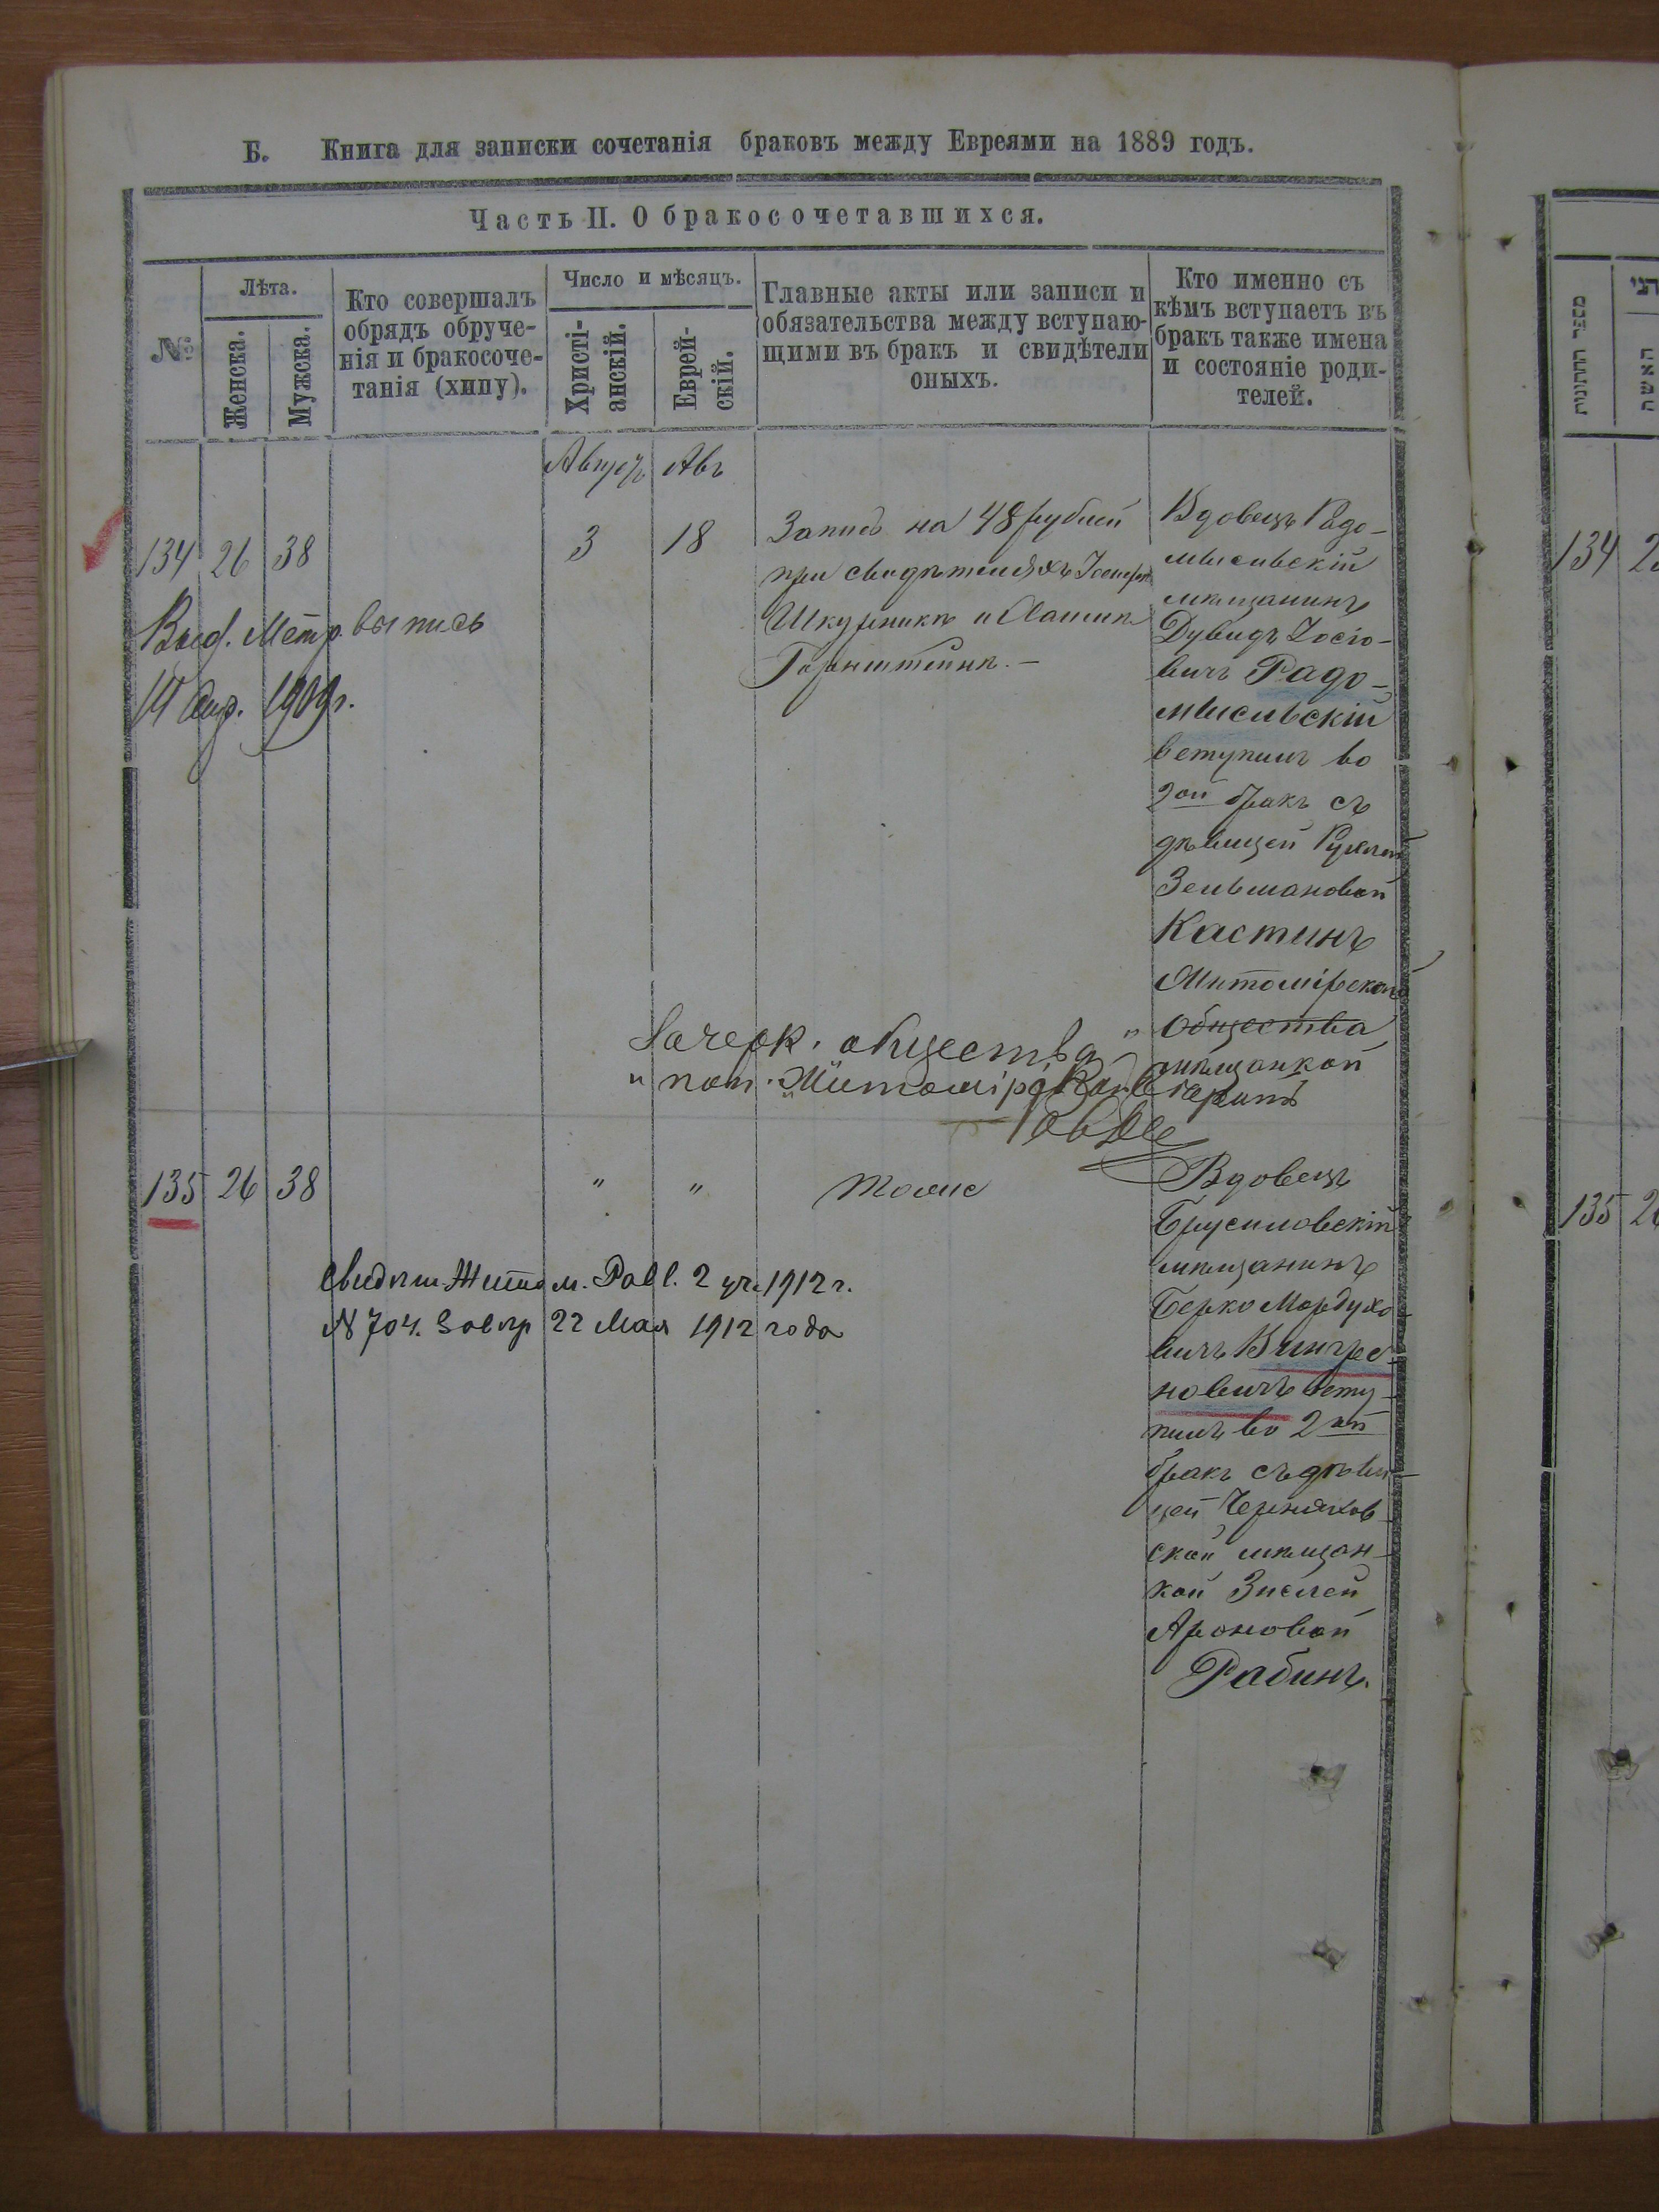 Б. Книга для записки сочетанія браковъ между Евреями на 1889 годъ.
Часть II. О бракосочетавшихся.
№
Лѣта.
Женска.
Мужска.
Кто совершалъ
обрядъ обруче-
нія и бракосоче-
танія (хипу).
Число и мѣсяцъ.
Христі-
анскій.
Еврей-
скій.
Главные акты или записи и
обязательства между вступаю-
щими въ бракъ и свидѣтели
оныхъ.
Кто именно съ
кѣмъ вступаетъ въ
бракъ также имена
и состояніе роди-
телей.
Августъ Авъ
134 26 38 3 18
Запись на 48 рублей
при свидѣтеляхъ
Шкурникъ и Хаимъ
Горенштейнъ. –
Вдовецъ Радо-
мысльскій
мѣщанинъ
Дувидъ Іосіо-
вичъ Радо-
мысльскій
вступилъ во
2ой бракъ съ
дѣвицей Рухлей
Зельмановой
Кастинъ
Житомірской
общества
мѣщанкой
Выд. Метр. выпись
14 Апр. 1909 г.
Зачерк. „общества"
„ поп. „Житомірской вѣрить
135 26 38 " " тоже
Вдовецъ
Брусиловскій
мѣщанинъ
Берко Мордухо-
вичъ Вингре-
новичъ всту-
пилъ во 2ой
бракъ съ дѣви-
цей Черняхов-
ской мѣщан-
кой Зислей
Ароновой
Рабинъ.
Свидѣт. Житом. Равв. 2 уч. 1912 г.
№ 704. 22 Мая 1912 года
מספר החתונות
האשה
134 2
135 2